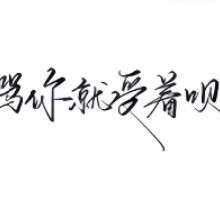 骂你就受着呗